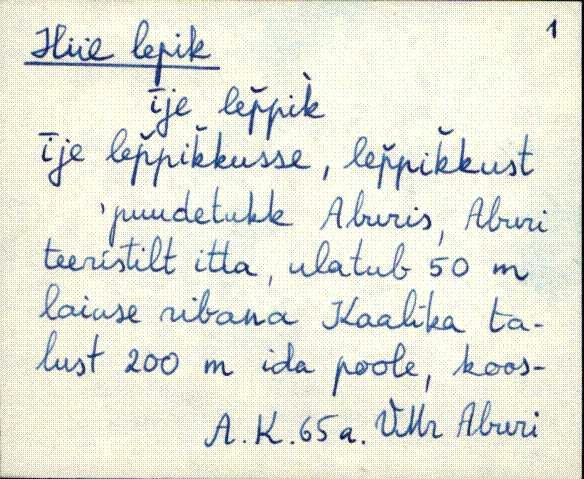 1
Hiie lepik
īje lep̆pik̀
īje lep̆pik̆kusse, lep̆pik̆kust
'puudetukk Aburis, Aburi
teeristilt itta, ulatub 50 m
laiuse ribana Kaalika ta-
lust 200 m ida poole, koos-
A.K. 65 a. VMr Aburi